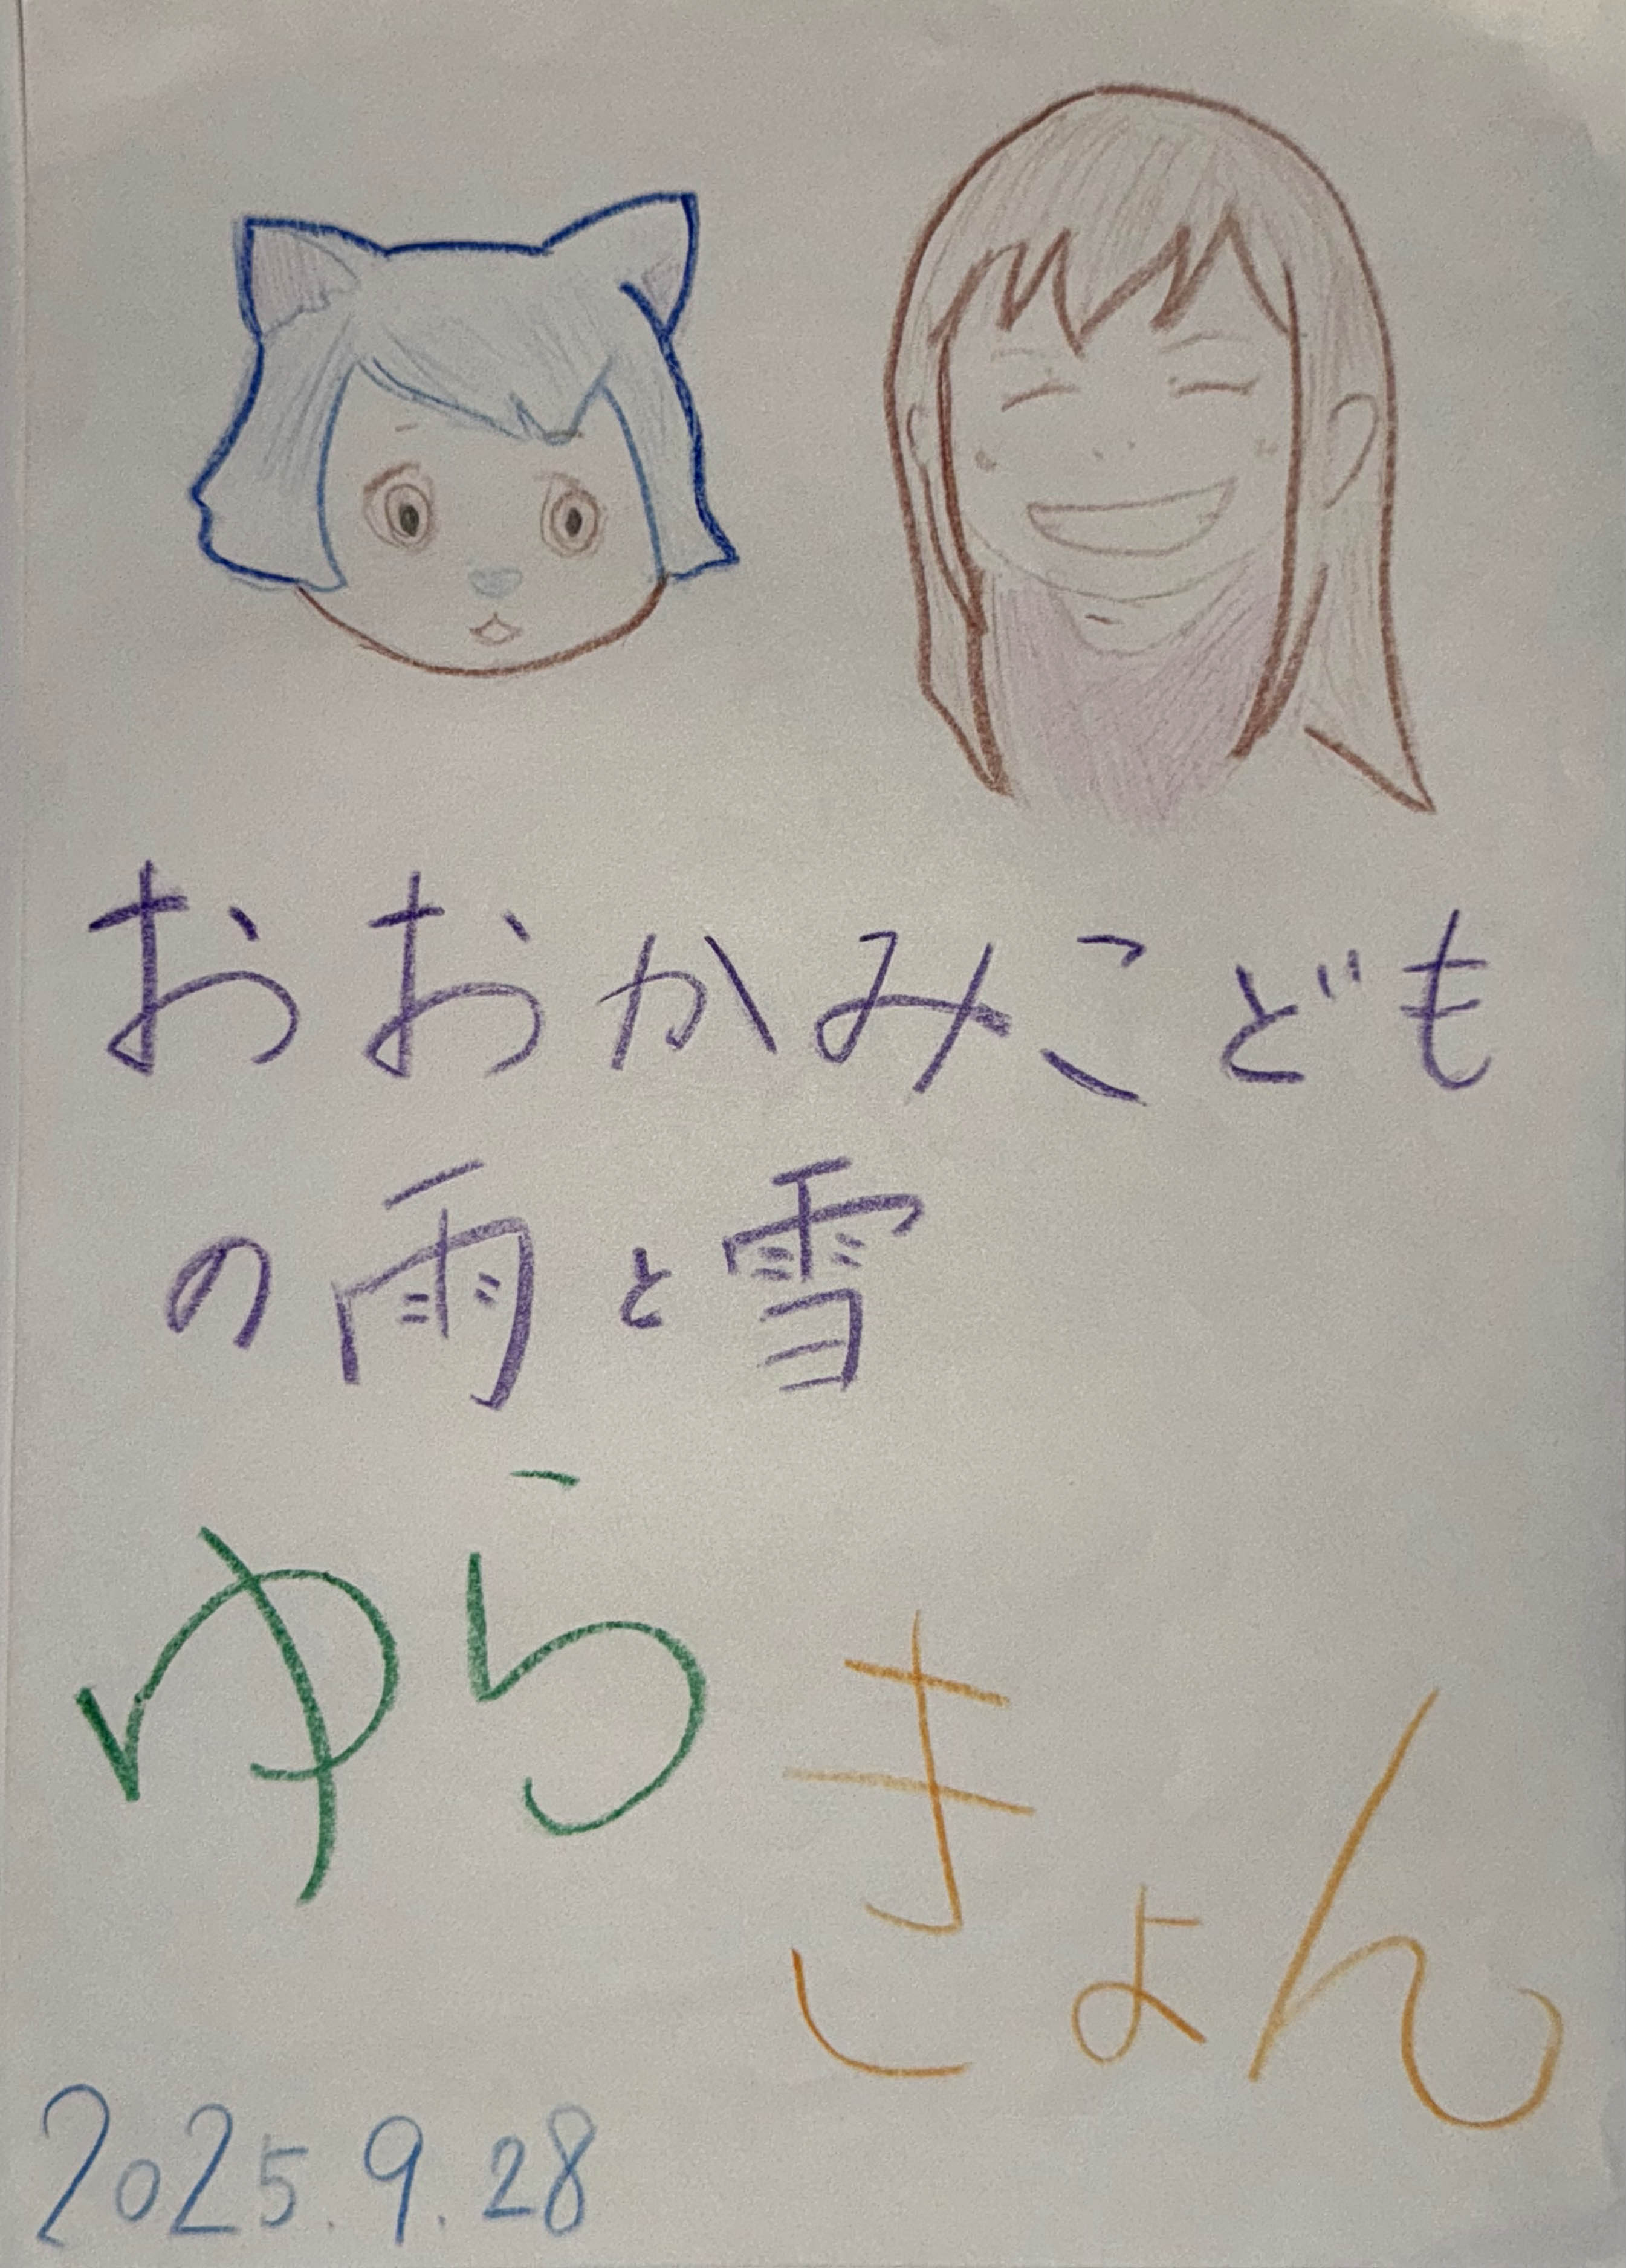 おおかみこども
の雨と雪
ゆら
きょん
2025.9.28